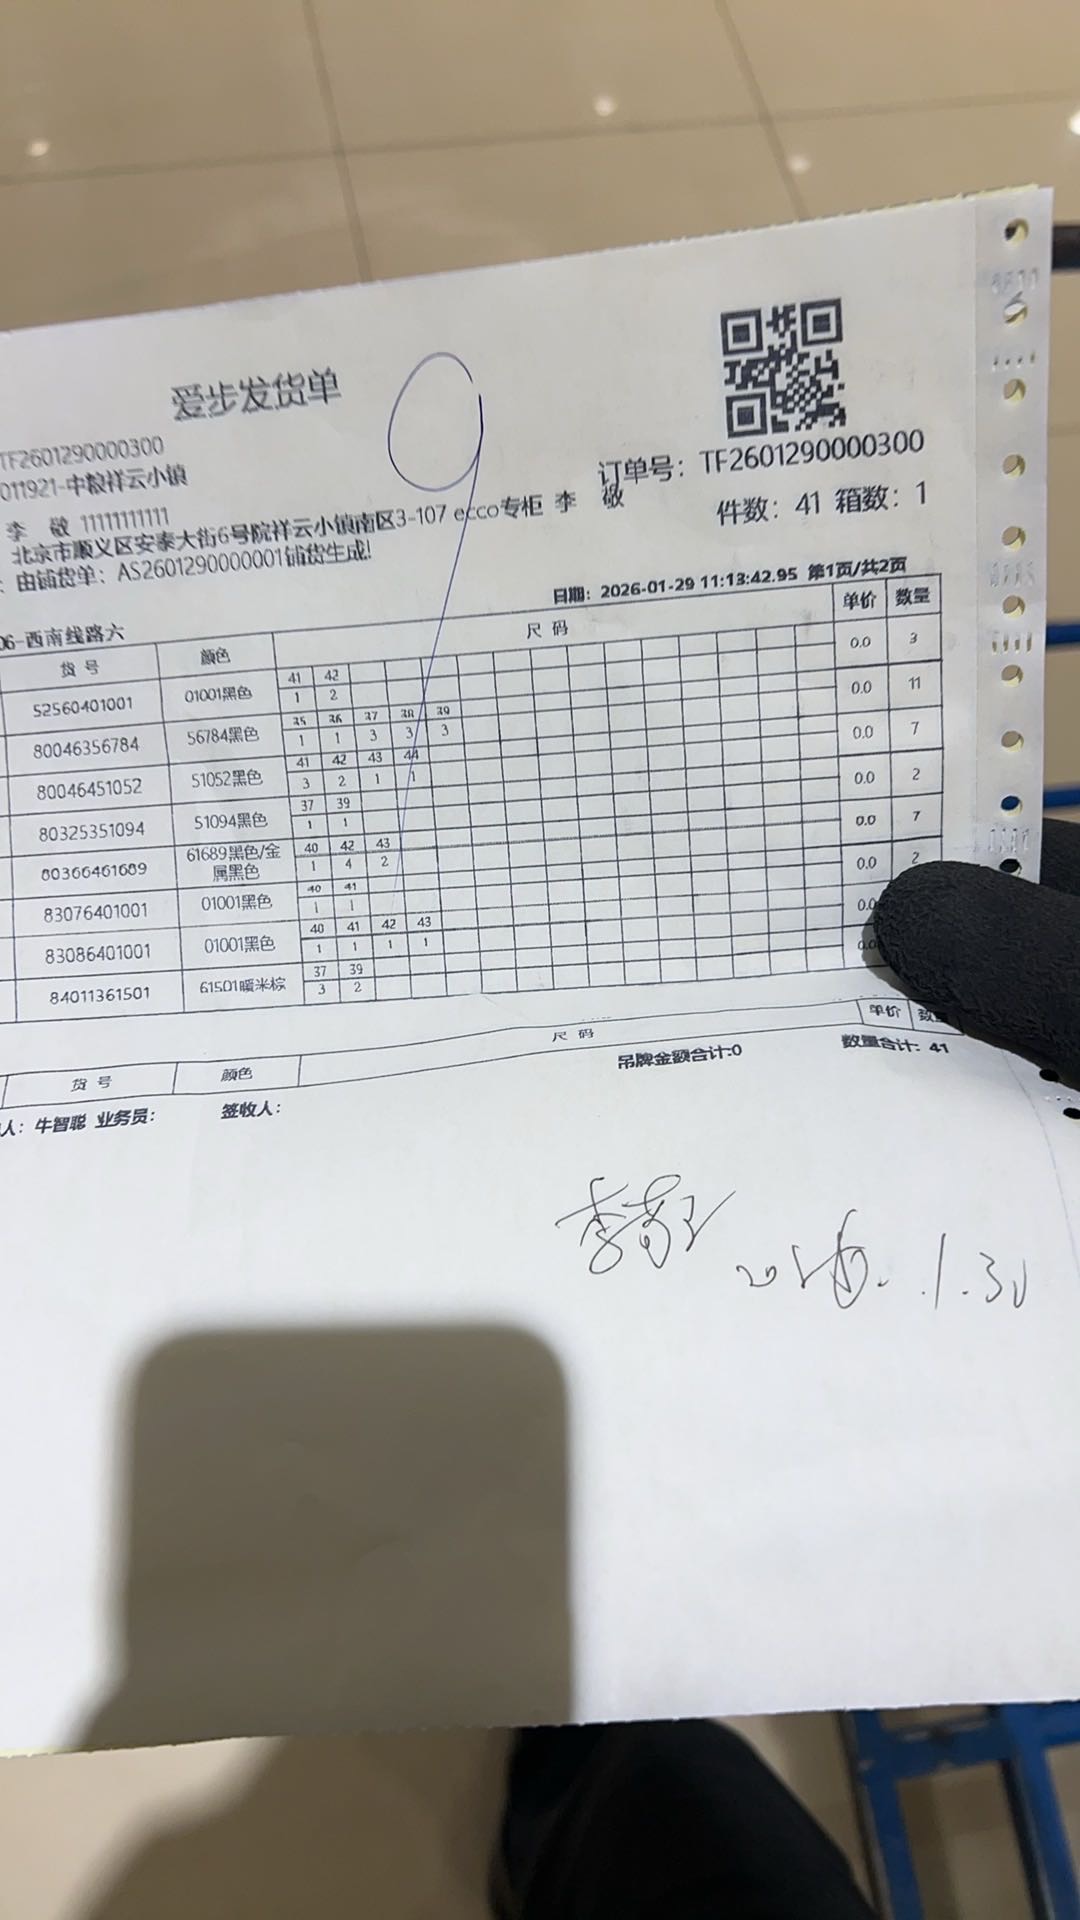 爱步发货单
TF2601290000300
011921-中粮祥云小镇
订单号：TF2601290000300
李 敬 11111111111
件数：41 箱数：1
北京市顺义区安泰大街6号院祥云小镇南区3-107 ecco专柜 李 敬
：由铺货单：AS2601290000001铺货生成!
日期：2026-01-29 11:13:42.95 第1页/共2页
06-西南线路六
货号 颜色 尺码 单价 数量
41 42
52560401001 01001黑色 1 2 0.0 3
35 36 37 38 39
80046356784 56784黑色 1 1 3 3 3 0.0 11
41 42 43 44
80046451052 51052黑色 3 2 1 1 0.0 7
37 39
80325351094 51094黑色 1 1 0.0 2
40 42 43
80366461689 61689黑色/金属黑色 1 4 2 0.0 7
40 41
83076401001 01001黑色 1 1 0.0 2
40 41 42 43
83086401001 01001黑色 1 1 1 1 0.0
37 39
84011361501 61501暖米棕 3 2 0.0
货号 颜色 尺码 单价 数
吊牌金额合计:0 数量合计: 41
人：牛智聪 业务员： 签收人：
李敬
2026.1.30